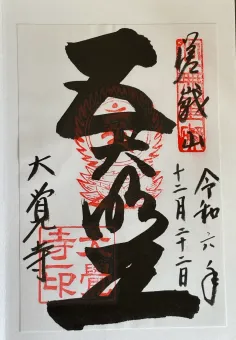 嵯峨山
令和六年
十二月二十二日
五大明王
大覚寺
大覺
寺印